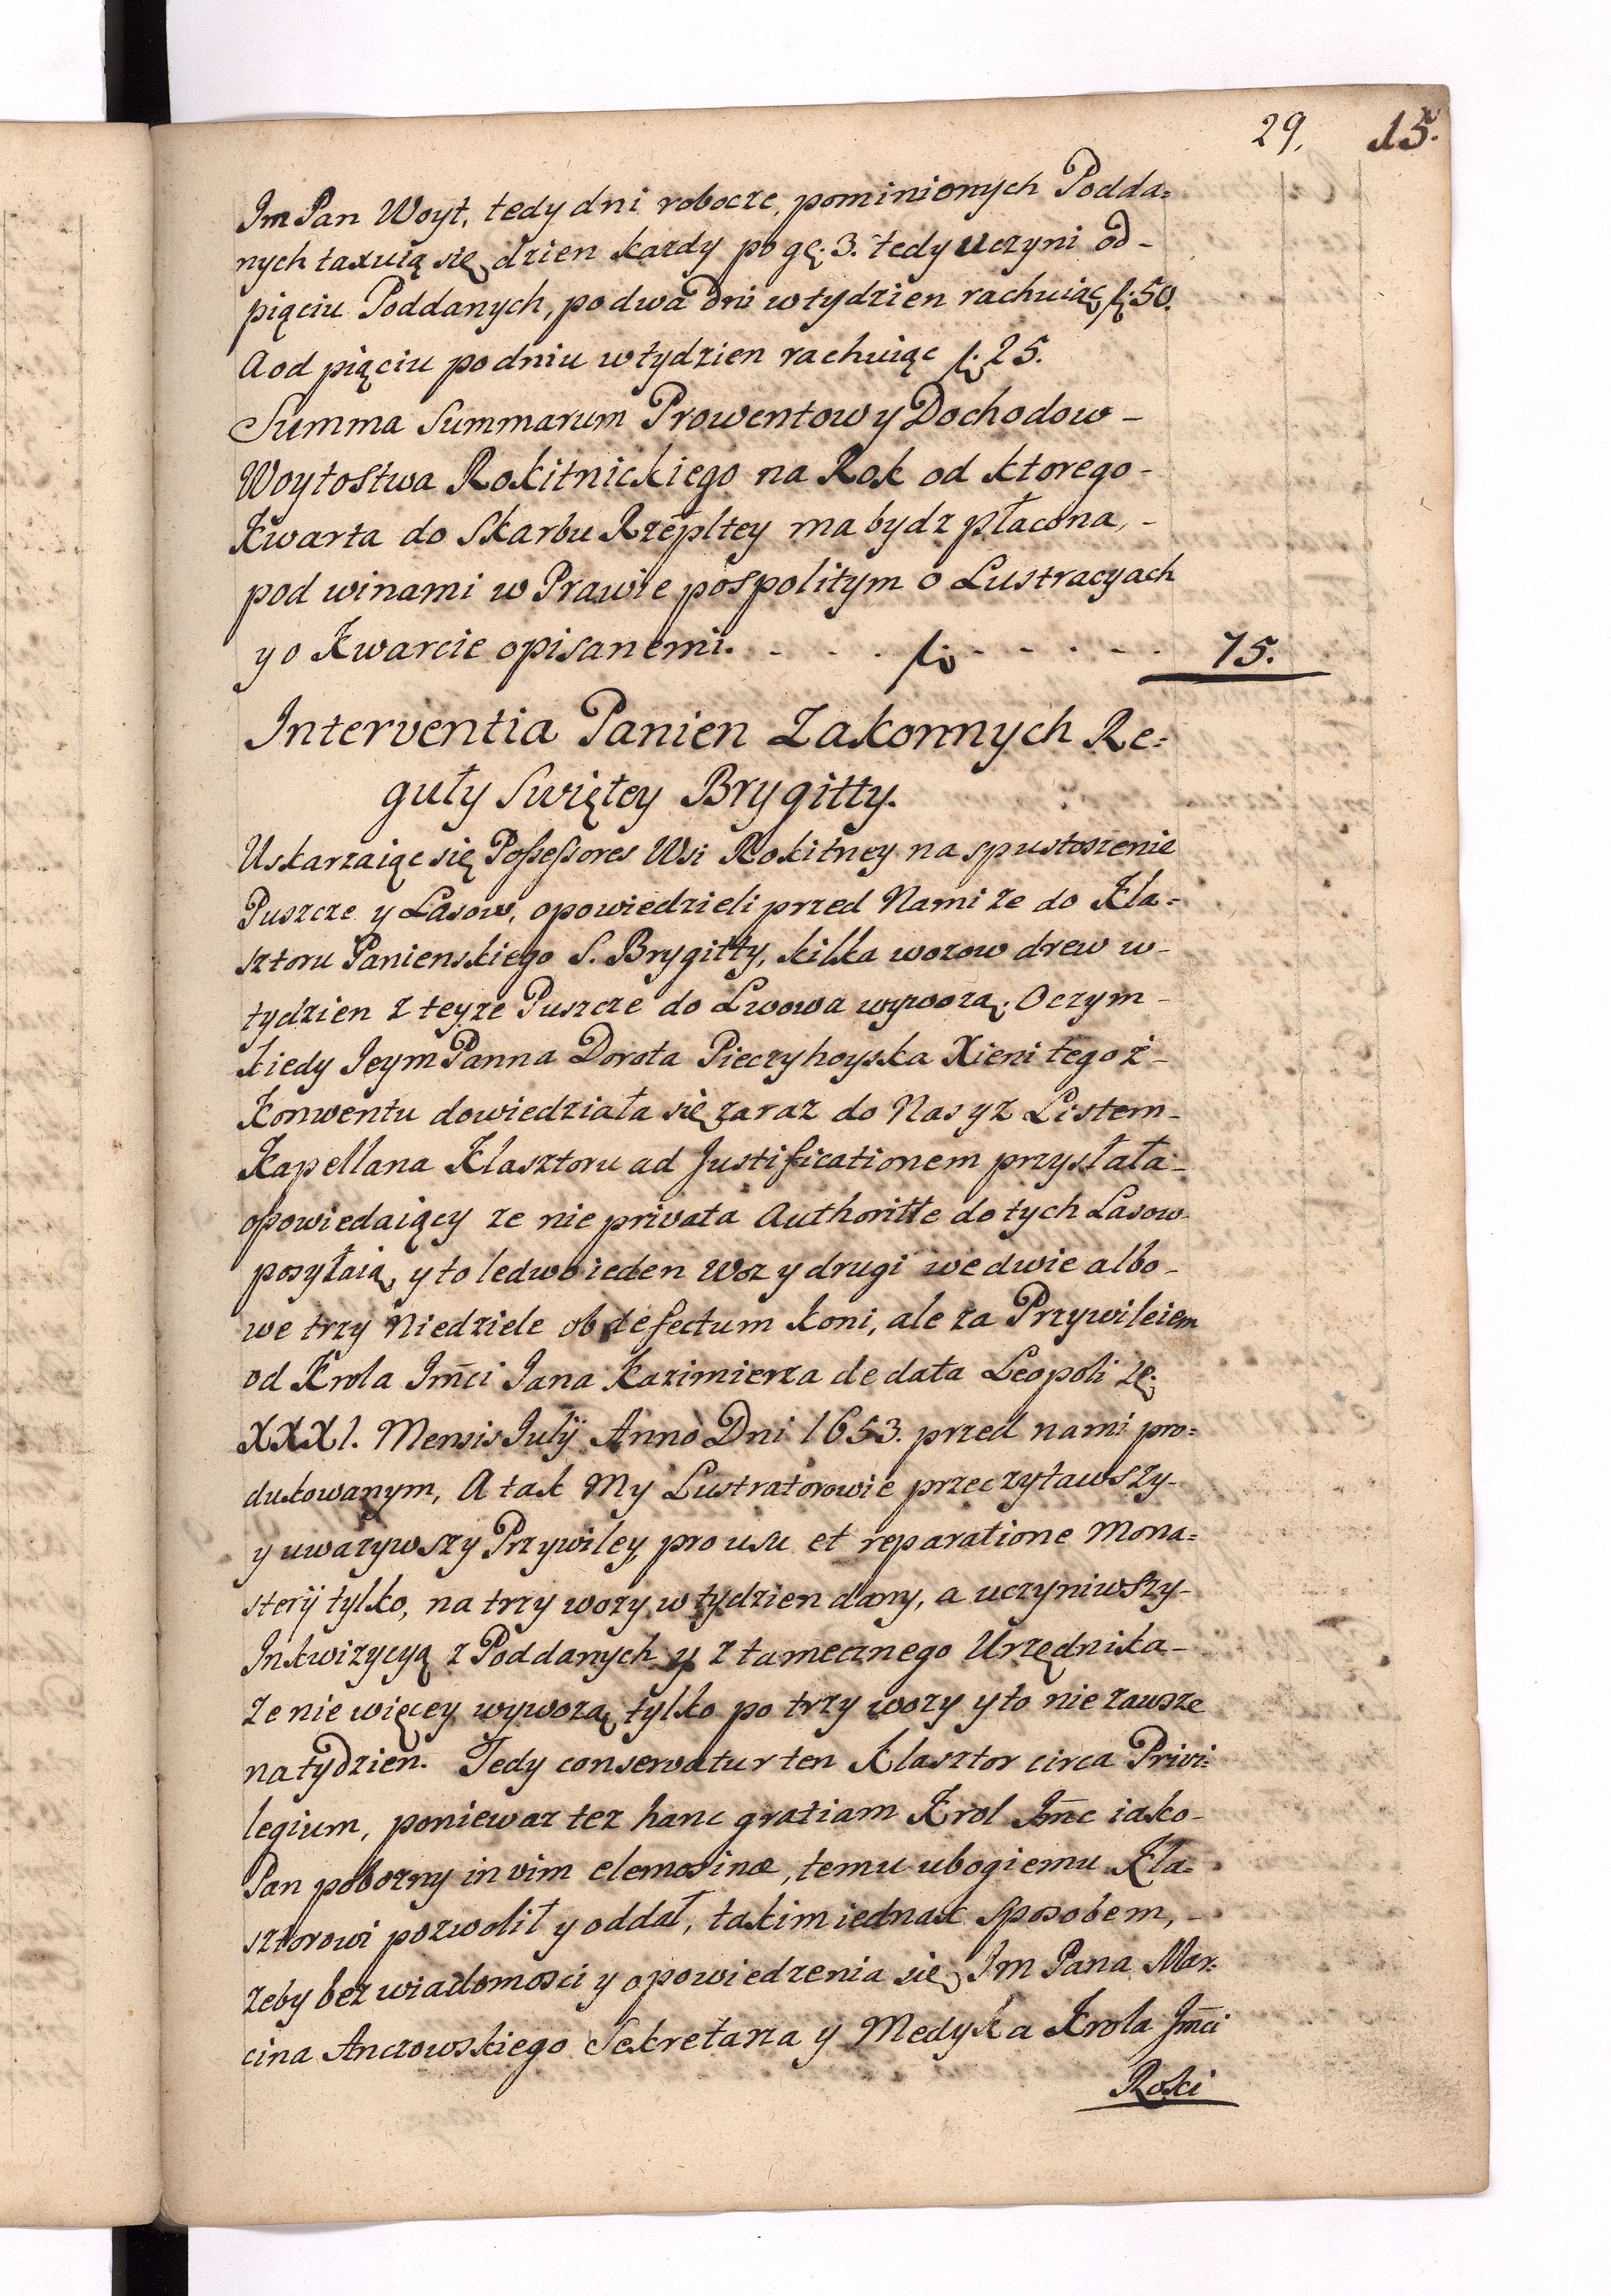 29. 15.
Im Pan Woyt, tedy dni robocze, pominionych Podda=
nych taxuią się, dzien kazdy po gę. 3. tedy uczyni od-
piąciu Poddanych, po dwa Dni w tydzien rachuiąc, f. 50.
A od piąciu po dniu w tydzien rachuiąc f. 25.
Summa Summarum Prowentow y Dochodow-
Woytostwa Rokitnickiego na Rok od ktorego-
Kwarta do Skarbu Rzepltey ma bydz płacona,-
pod winami w Prawie pospolitym o Lustracyach
y o Kwarcie opisanemi. - - . f. - - - . - - . 75.
Interventia Panien Zakonnych Re=
guły Swiętey Brygitty.
Uskarzaiąc się Possessores Wsi Rokitney na spustoszenie
Puszcze y Lasow, opowiedzieli przed Nami ze do Kla=
sztoru Panienskiego S. Brygitty, kilka wozow drew w-
tydzien z teyze Puszcze do Lwowa wywozą. O czym-
kiedy Jeym Panna Dorota Pieczyhoyska Xieni tegoż-
Konwentu dowiedziała się zaraz do Nas y z Listem-
Kapellana Klasztoru ad Justificationem przysłała-
opowiedaiący ze nie privata Authoritte do tych Lasow-
posyłaią, y to ledwo ieden Woz y drugi we dwie albo-
we trzy Niedziele ob defectum koni, ale za Przywileiem
od Krola Jm̃ci Jana Kazimierza de data Leopoli
XXXI. Mensis Julij Anno Dni 1653. przed nami pro=
dukowanym, A tak My Lustratorowie przeczytawszy-
y uwazywszy Przywiley, pro usu et reparatione Mona=
sterij tylko, na trzy wozy, w tydzien dany, a uczyniwszy-
Inkwizycyą z Poddanych y z tamecznego Urzędnika-
ze nie więcey wywozą, tylko po trzy wozy y to nie zawsze
na tydzien. Tedy conservatur ten Klasztor circa Privi=
legium, poniewaz tez hanc gratiam Krol Jm̃c iako-
Pan pobozny in vim elemosinæ, temu ubogiemu Kla=
sztorowi pozwolił y oddał, takim iednak Sposobem,-
zeby bez wiadomosci y opowiedzenia się, Jm Pana Mar=
cina Anczowskiego Sekretarza y Medyka Krola Jm̃ci
Roki